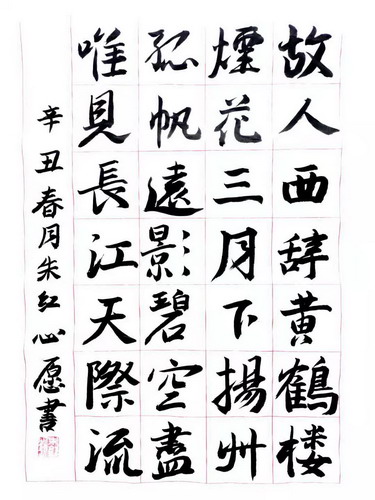 故人西辞黄鹤楼
煙花三月下揚州
孤帆遠影碧空盡
唯見長江天際流
辛丑春月朱红心愿書